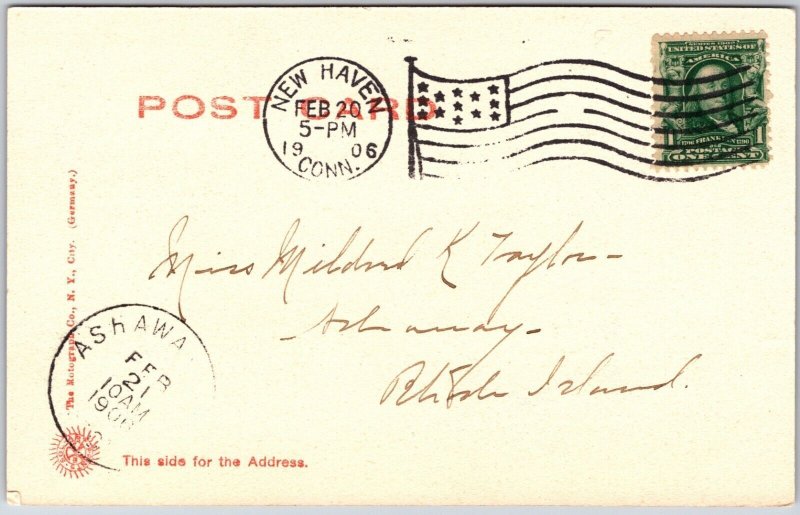 POST CARD
NEW HAVEN
FEB 20
5-PM
1906
CONN.
UNITED STATES OF
AMERICA
1 FRANKLIN 1790
POSTAGE
ONE CENT
1
Miss Mildred K Taylor-
Ashaway-
Rhode Island.
The Rotograph Co., N. Y., City. (Germany.)
ASHAWA
FEB
21
10AM
1906
This side for the Address.